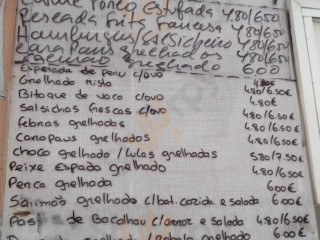 Carne Porco estufada 4.80/650
Pescada frita francesa 4.80/650
Hamburguers/Salsicheiro 4.80/650
Carapaus grelhados 4.80/650
Salmão grelhado 600
Espetada de peru c/ovo
Grelhado mista 4.80€
Bitoque de vaca c/ovo 4.80/6.50€
Salsichas frescas c/ovo 4.80€
Febras grelhadas 4.80/6.50€
Carapaus grelhados 4.80/6.50€
Choco grelhado/Lulas grelhadas 580/7.50€
Peixe Espada grelhado 4.80/6.50€
Perca grelhada 600€
Salmão grelhado c/bat.cozida e salada 600€
de Bacalhau c/arroz e salada 4.80/6.50€
grelhado 600€